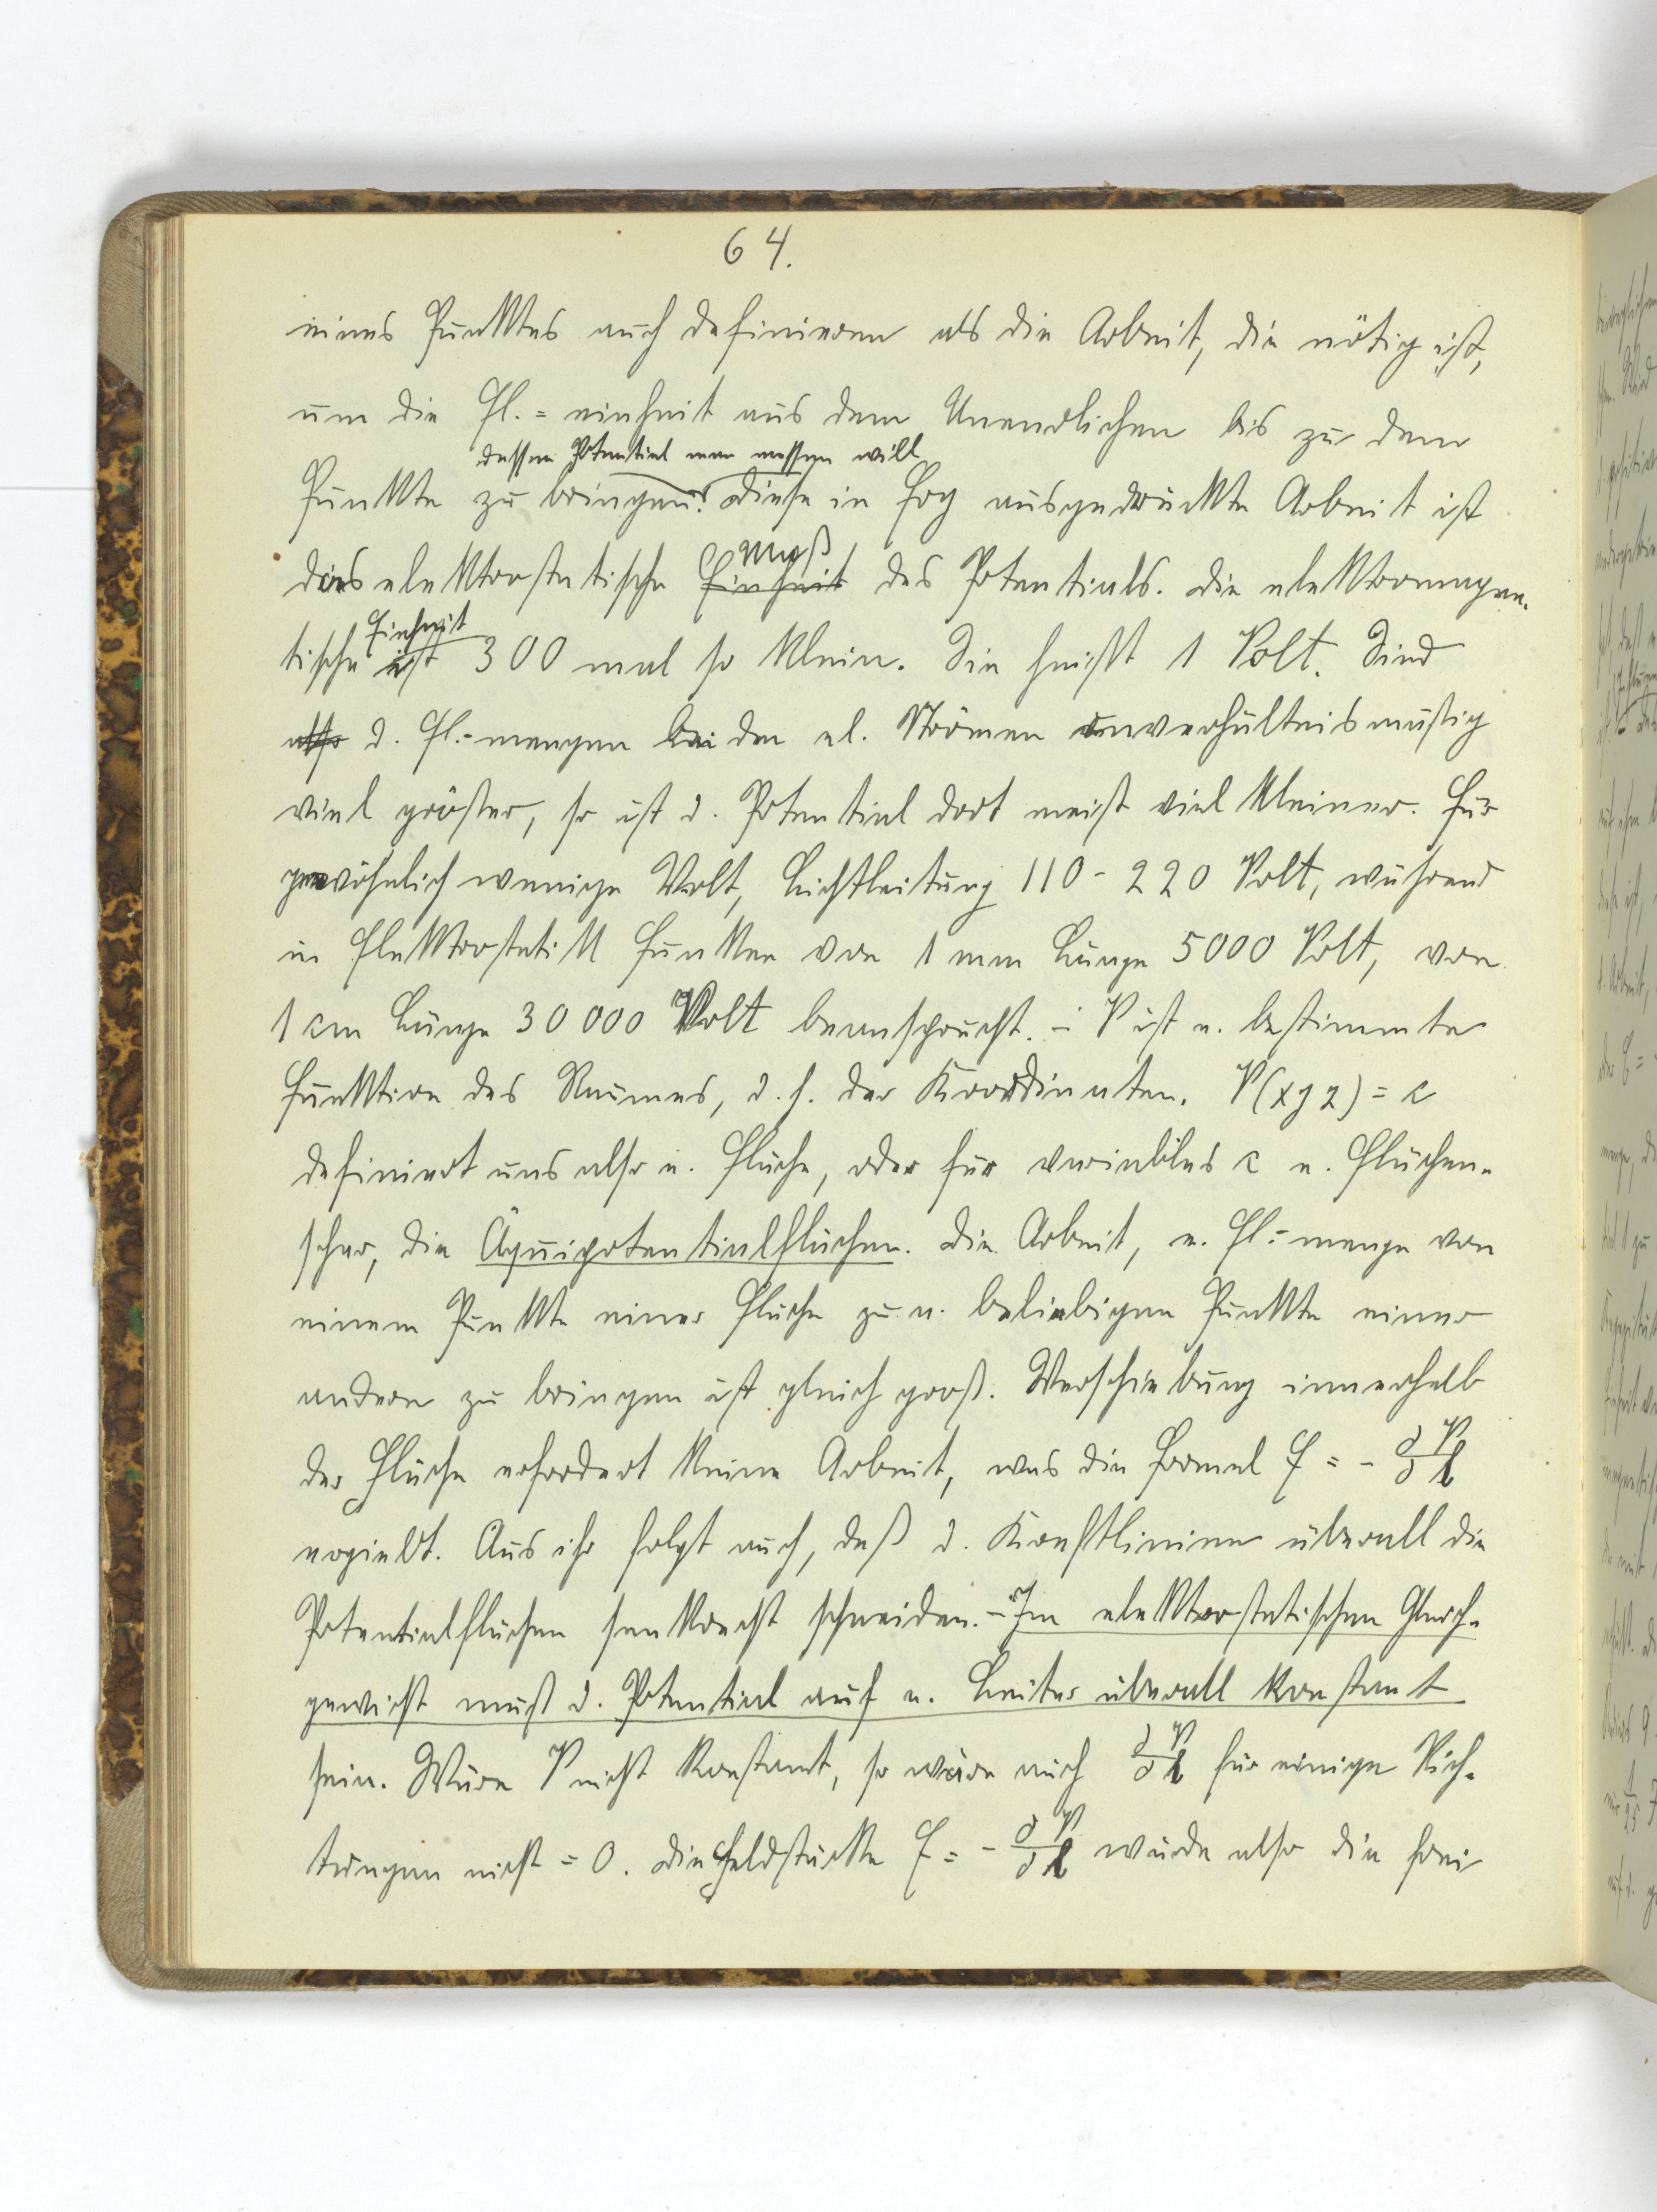 64.
eines Punktes auch definieren als die Arbeit, die nötig ist,
um die El.-einheit aus dem Unendlichen bis zu dem
dessen Potential man messen will
Punkte zu bringen. Diese in Erg ausgedrückte Arbeit ist
Maß
das elektrostatische Einheit des Potentials. Die elektromagne-
Einheit
tische ist 300 mal so klein. Sie heißt 1 Volt. Sind
also d. El.-mengen bei den el. Strömen unverhältnismäßig
viel größer, so ist d. Potential dort meist viel kleiner. Für
gewöhnlich wenige Volt, Lichtleitung 110 - 220 Volt, während
in Elektrostatik Funken von 1 mm Länge 5000 Volt, von
1 cm Länge 30 000 Volt beansprucht. - V ist e. bestimmte
Funktion des Raumes, d. h. der Koordinaten. V(xyz) = c
definiert uns also e. Fläche, oder für variables c e. Flächen-
schar, die Äquipotentialflächen. Die Arbeit, e. El.-menge von
einem Punkte einer Fläche zu e. beliebigen Punkte einer
andern zu bringen ist gleich groß. Verschiebung innerhalb
der Fläche erfordert keine Arbeit, was die Formel E = - ∂V/∂l
ergiebt. Aus ihr folgt auch, daß d. Kraftlinien überall die
Potentialflächen senkrecht schneiden. - Im elektrostatischen Gleich-
gewicht muß d. Potential auf e. Leiter überall konstant
sein. Wäre V nicht konstant, so wäre auch ∂V/∂l für einige Rich-
tungen nicht = 0. Die Feldstärke E = - ∂V/∂l würde also die frei